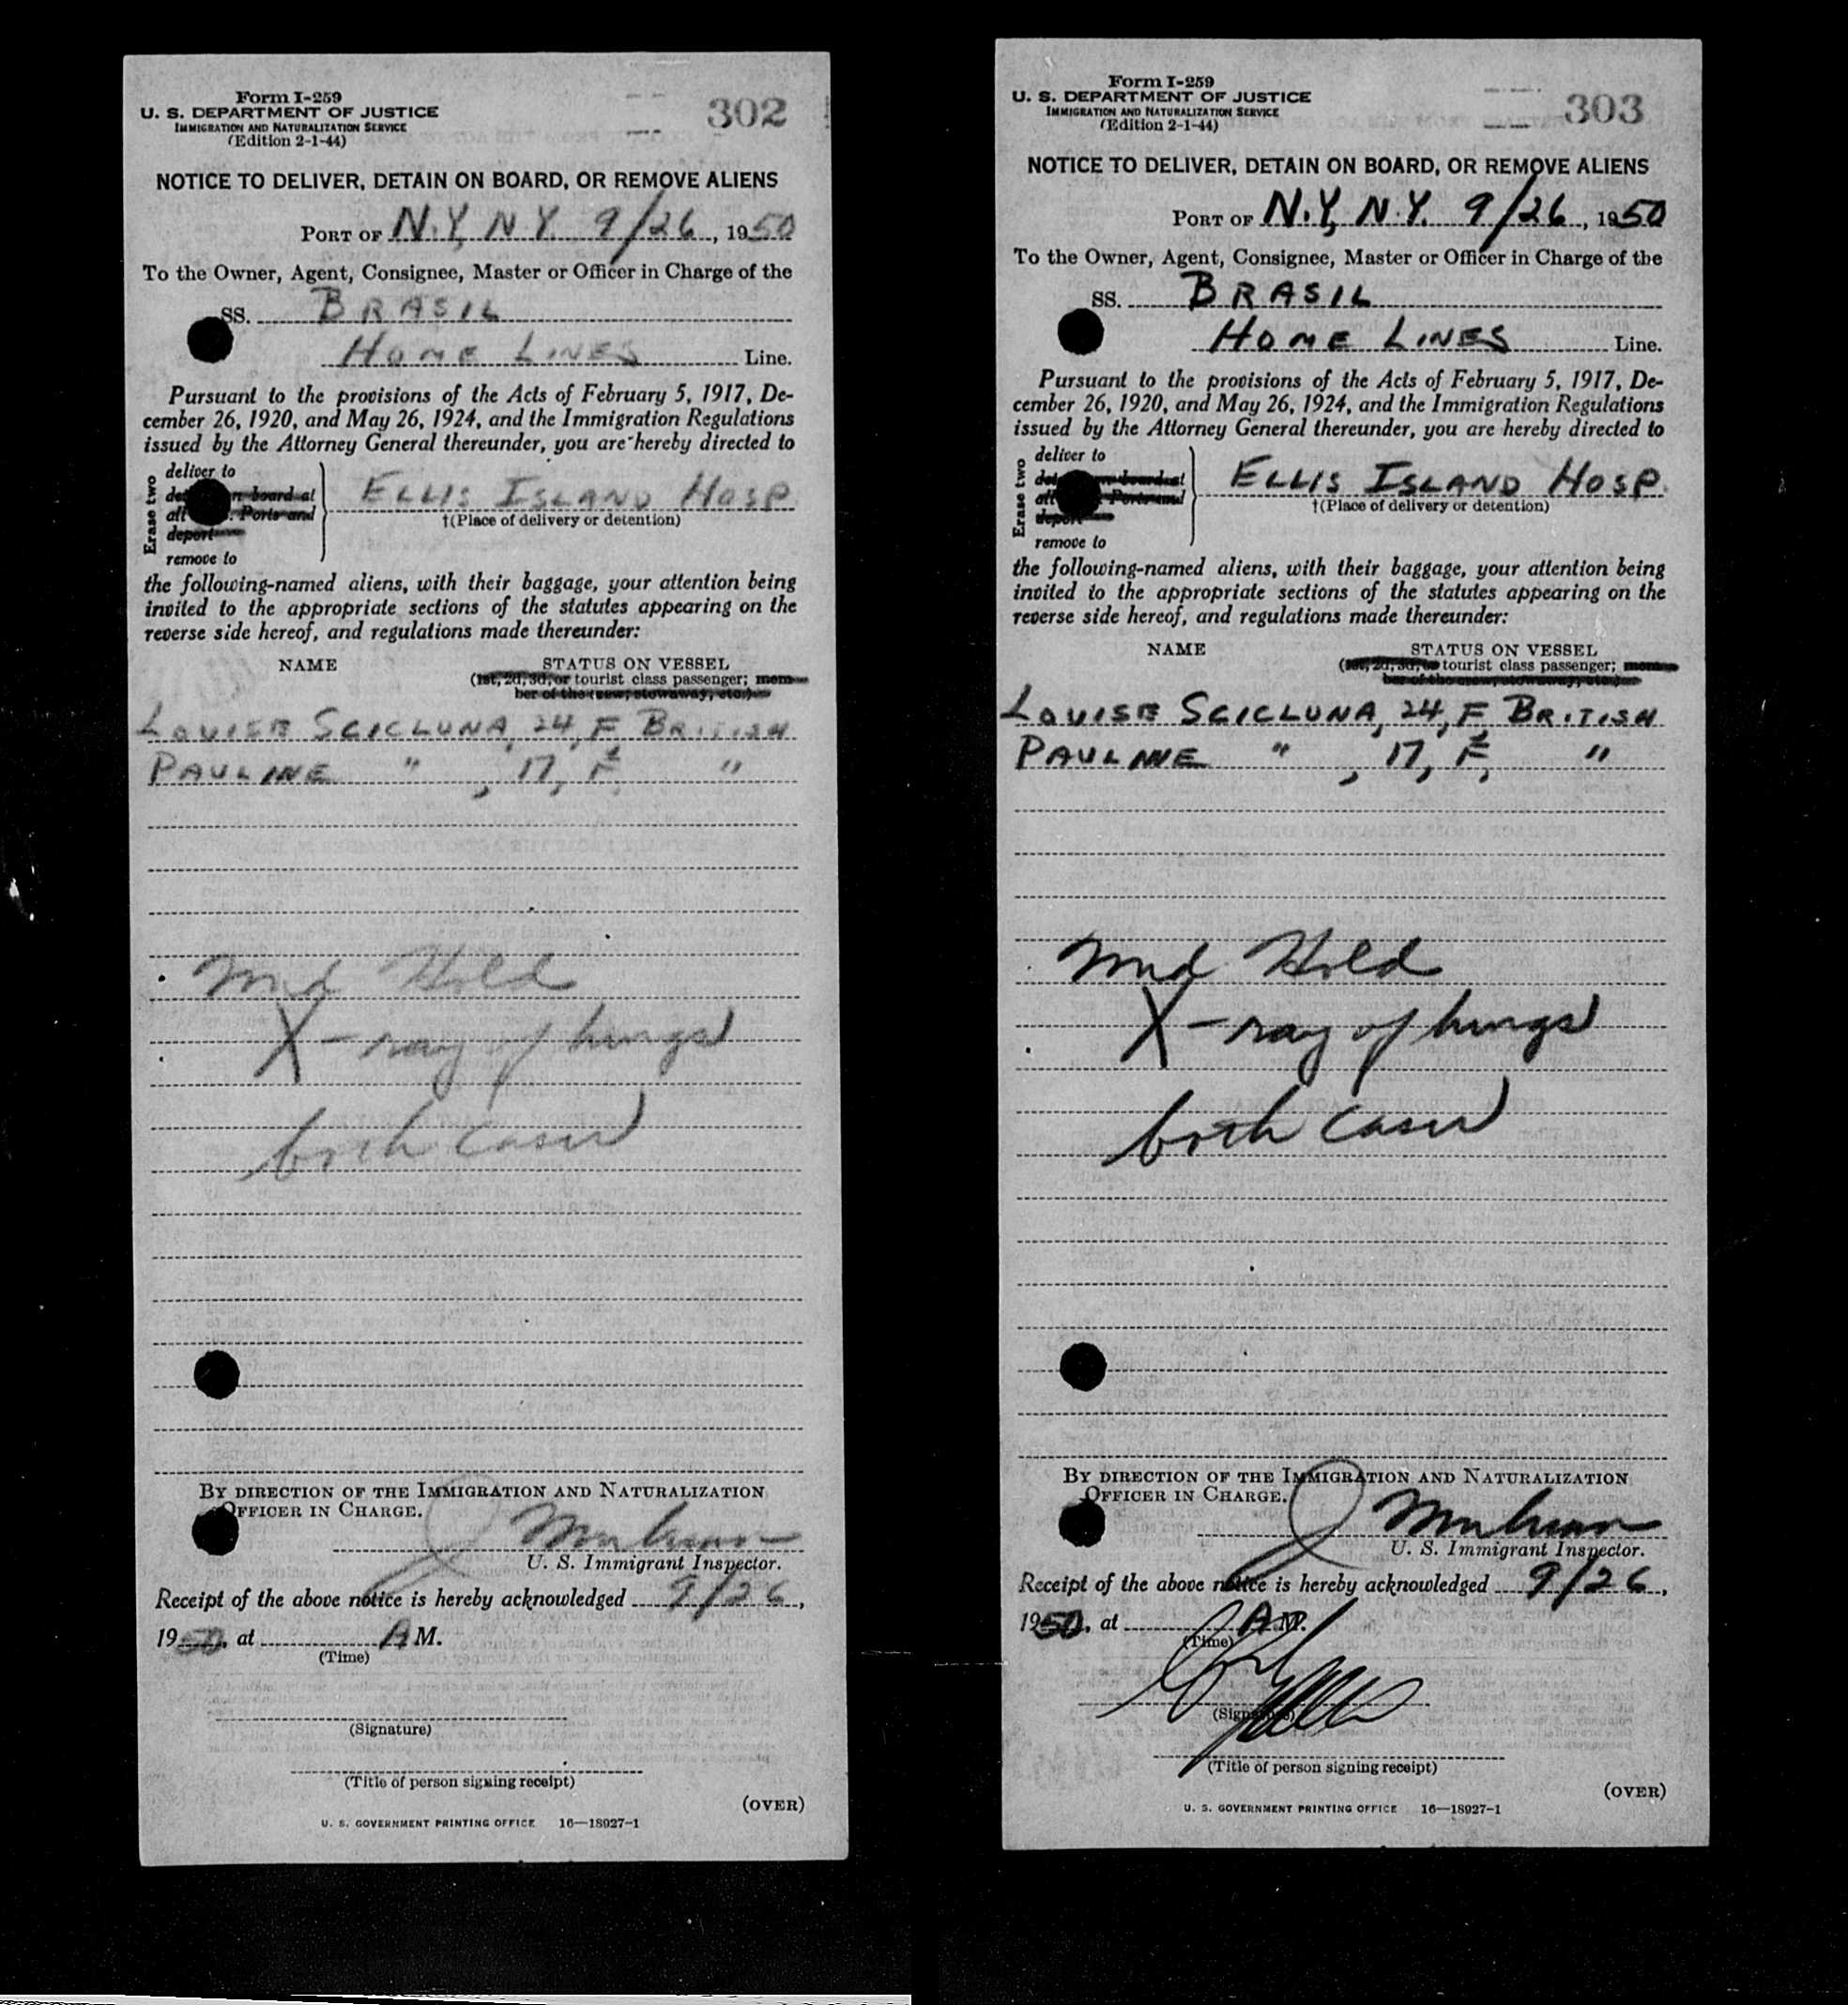 Form I-259
U. S. DEPARTMENT OF JUSTICE
IMMIGRATION AND NATURALIZATION SERVICE
(Edition 2-1-44)
302
NOTICE TO DELIVER, DETAIN ON BOARD, OR REMOVE ALIENS
PORT OF N.Y, N.Y. 9/26, 1950
To the Owner, Agent, Consignee, Master or Officer in Charge of the
SS. BRASIL
HOME LINES Line.
Pursuant to the provisions of the Acts of February 5, 1917, De-
cember 26, 1920, and May 26, 1924, and the Immigration Regulations
issued by the Attorney General thereunder, you are hereby directed to
Erase two
deliver to
on board at
all Ports and
deport
remove to
ELLIS ISLAND HOSP.
†(Place of delivery or detention)
the following-named aliens, with their baggage, your attention being
invited to the appropriate sections of the statutes appearing on the
reverse side hereof, and regulations made thereunder:
NAME STATUS ON VESSEL
(1st, 2d, 3d, or tourist class passenger; mem-
ber of the crew, stowaway, etc.)
LOUISE SCICLUNA, 24, F, BRITISH
PAULINE " , 17, F, "
Med Hold
X-ray of lungs
both cases
BY DIRECTION OF THE IMMIGRATION AND NATURALIZATION
OFFICER IN CHARGE.
U. S. Immigrant Inspector.
Receipt of the above notice is hereby acknowledged 9/26,
1950, at A M.
(Time)
(Signature)
(Title of person signing receipt)
(OVER)
U. S. GOVERNMENT PRINTING OFFICE 16—18927-1
Form I-259
U. S. DEPARTMENT OF JUSTICE
IMMIGRATION AND NATURALIZATION SERVICE
(Edition 2-1-44)
303
NOTICE TO DELIVER, DETAIN ON BOARD, OR REMOVE ALIENS
PORT OF N.Y, N.Y. 9/26, 1950
To the Owner, Agent, Consignee, Master or Officer in Charge of the
SS. BRASIL
HOME LINES Line.
Pursuant to the provisions of the Acts of February 5, 1917, De-
cember 26, 1920, and May 26, 1924, and the Immigration Regulations
issued by the Attorney General thereunder, you are hereby directed to
Erase two
deliver to
on board at
all Ports and
deport
remove to
ELLIS ISLAND HOSP.
†(Place of delivery or detention)
the following-named aliens, with their baggage, your attention being
invited to the appropriate sections of the statutes appearing on the
reverse side hereof, and regulations made thereunder:
NAME STATUS ON VESSEL
(1st, 2d, 3d, or tourist class passenger; mem-
ber of the crew, stowaway, etc.)
LOUISE SCICLUNA, 24, F, BRITISH
PAULINE " , 17, F, "
Med Hold
X-ray of lungs
both cases
BY DIRECTION OF THE IMMIGRATION AND NATURALIZATION
OFFICER IN CHARGE.
U. S. Immigrant Inspector.
Receipt of the above notice is hereby acknowledged 9/26,
1950, at A M.
(Time)
(Signature)
(Title of person signing receipt)
(OVER)
U. S. GOVERNMENT PRINTING OFFICE 16—18927-1